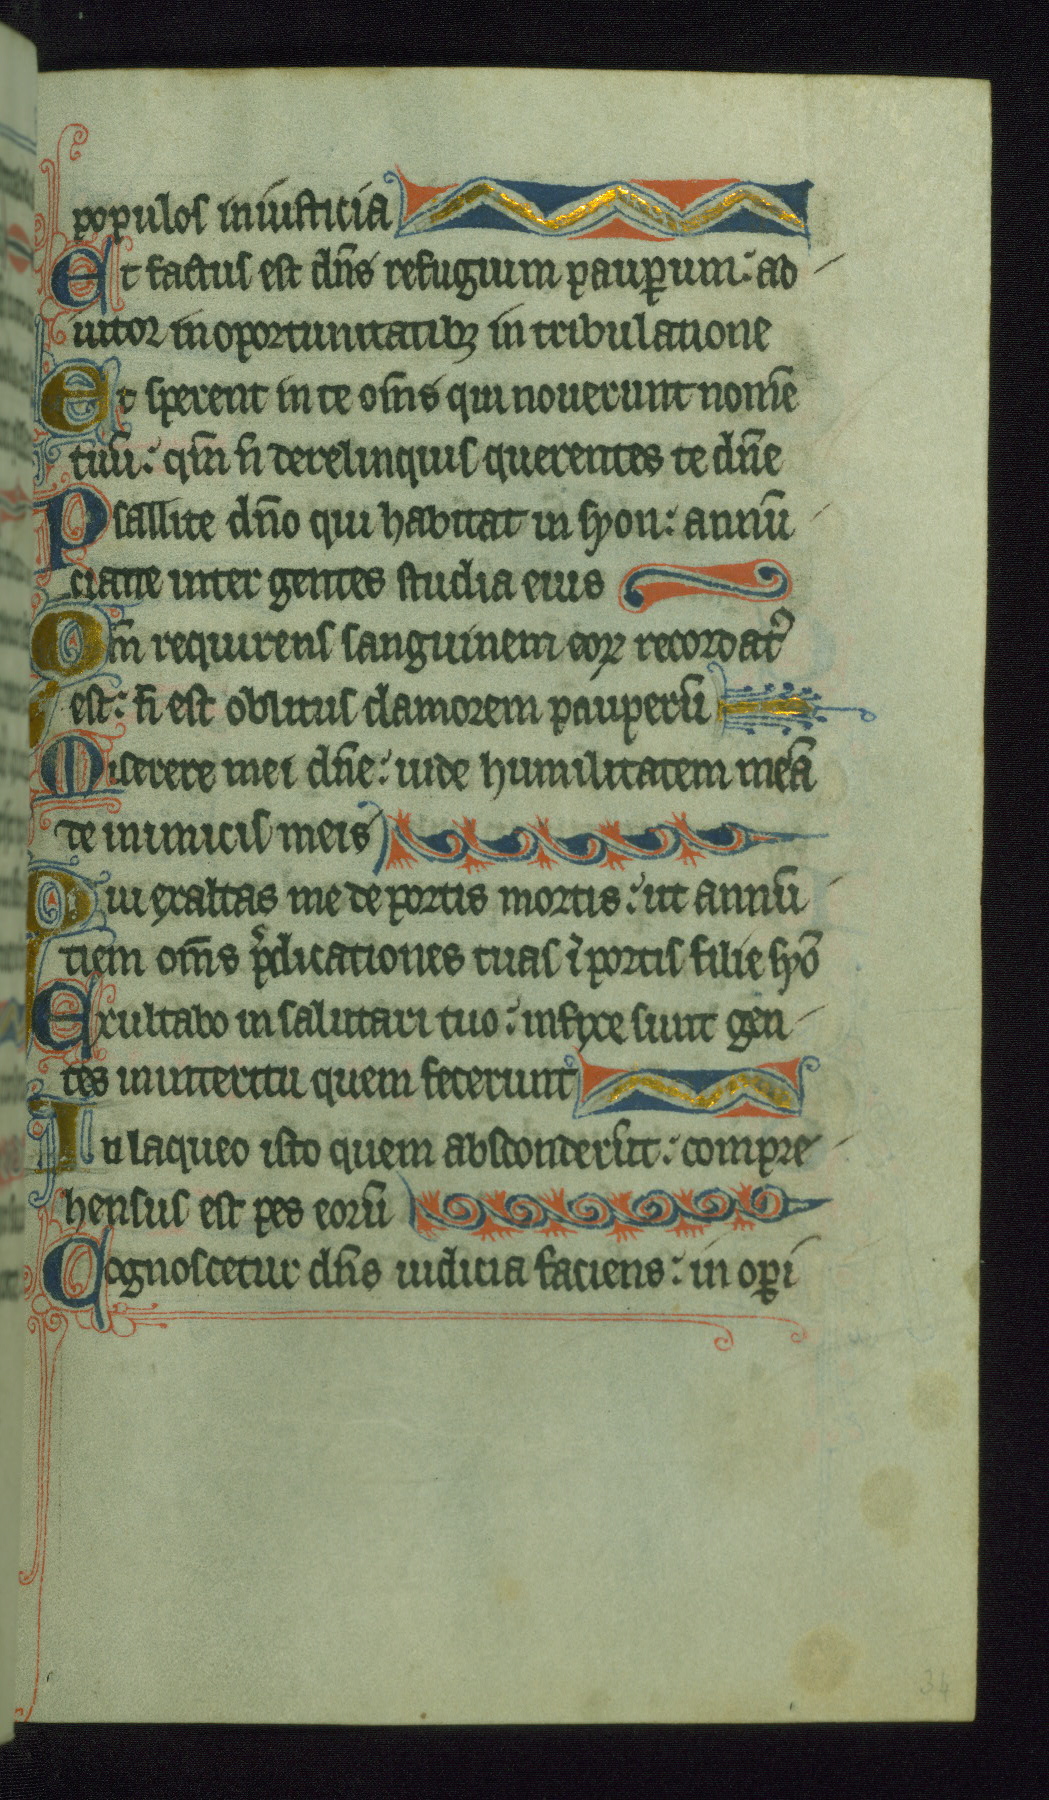 populos in iusticia
Et factus est dn̄s refugium paup̲um : ad
iutor in oportunitatibꝫ in tribulatione
Et sperent in te om̄s qui nouerunt nom̄e
tuū : qm̄ n̄ derelinquis querentes te dn̄e
Psallite dn̄o qui habitat in syon : annū
ciate inter gentes studia eius
Qm̄ requirens sanguinem eoꝝ recordat᷑
est : n̄ est oblitus clamorem pauperū
Miserere mei dn̄e : uide humilitatem meā
de inimicis meis
Qui exaltas me de portis mortis : ut annū
tiem om̄s p̄dicationes tuas ī portis filie syō
Exultabo in salutari tuo : infixe sunt gen
tes in interitu quem fecerunt
In laqueo isto quem absconderūt : compre
hensus est pes eorū
Cognoscetur dn̄s iudicia faciens : in oꝑi
34